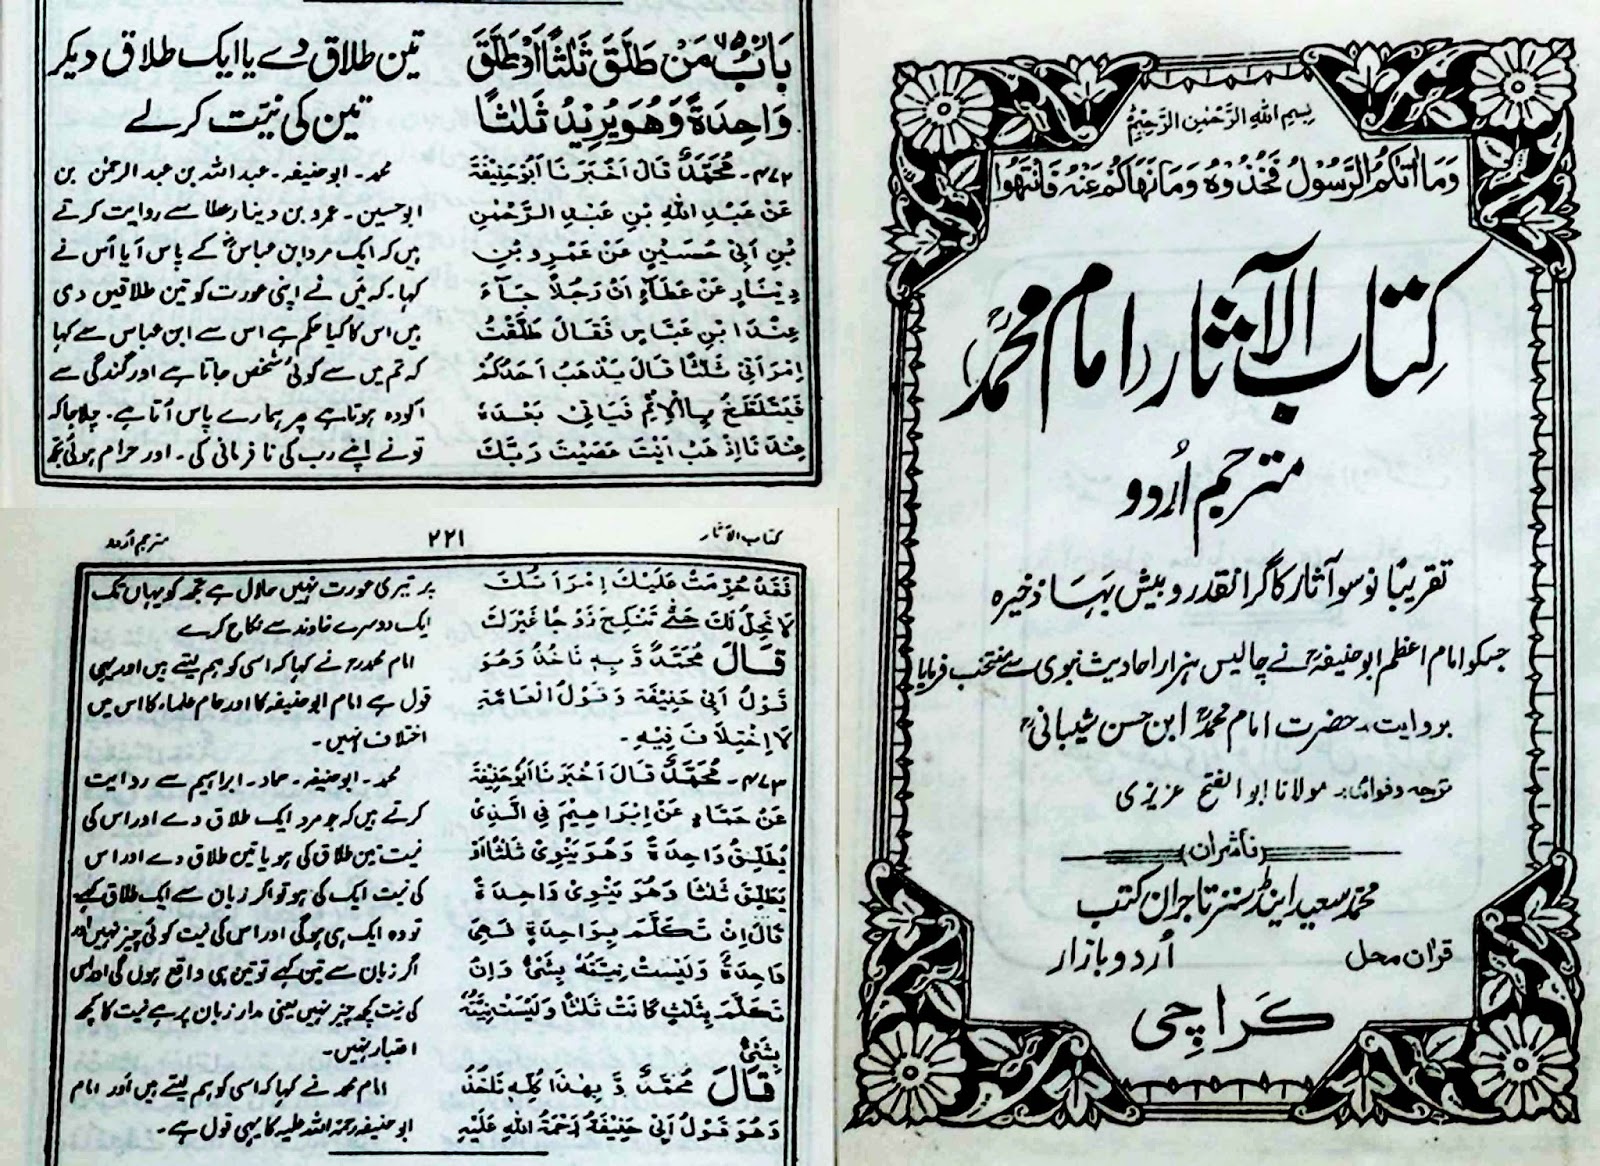 بسم الله الرحمن الرحيم
وَمَا اٰتٰكُمُ الرَّسُوْلُ فَخُذُوْهُ وَمَا نَهَاكُمْ عَنْهُ فَانْتَهُوْا
کتاب الآثار (امام محمدؒ)
مترجم اُردو
تقریباً نو سو آثار کا گرانقدر و بیش بہا ذخیرہ
جسکو امام اعظم ابو حنیفہؒ نے چالیس ہزار احادیث نبوی سے منتخب فرمایا
بروایت۔ حضرت امام محمدؒ ابن حسن شیبانیؒ
ترجمہ و فوائد۔ مولانا ابو الفتح عزیزی
ناشران
محمد سعید اینڈ سنز تاجران کتب
قرآن محل اُردو بازار
کراچی
بَابُ مَنْ طَلَّقَ ثَلٰثًا اَوْ طَلَّقَ
وَاحِدَةً وَّهُوَ يُرِيْدُ ثَلٰثًا
۴۷۲۔ مُحَمَّدٌ قَالَ اَخْبَرَنَا اَبُوْحَنِيْفَةَ
عَنْ عَبْدِ اللهِ بْنِ عَبْدِ الرَّحْمٰنِ
بْنِ اَبِيْ حُسَيْنٍ عَنْ عَمْرِو بْنِ
دِيْنَارٍ عَنْ عَطَآءٍ اَنَّ رَجُلًا جَآءَ
عِنْدَ ابْنِ عَبَّاسٍ فَقَالَ طَلَّقْتُ
اِمْرَاَتِيْ ثَلٰثًا قَالَ يَذْهَبُ اَحَدُكُمْ
فَيَتَلَطَّخُ بِالْاِثْمِ فَيَاْتِيْ بَعْدَهٗ
عِنْدَنَا اِذْهَبْ اَنْتَ عَصَيْتَ رَبَّكَ
تین طلاق دے یا ایک طلاق دیکر
تین کی نیت کر لے
محمد۔ ابو حنیفہ۔ عبد اللہ بن عبد الرحمٰن بن
ابو حسین۔ عمرو بن دینار عطا سے روایت کرتے
ہیں کہ ایک مرد ابن عباسؓ کے پاس آیا اُس نے
کہا۔ کہ میں نے اپنی عورت کو تین طلاقیں دی
ہیں اس کا کیا حکم ہے اس سے ابن عباس نے کہا
کہ تم میں سے کوئی شخص جاتا ہے اور گندگی سے
آلودہ ہوتا ہے پھر ہمارے پاس آتا ہے۔ چلا جا کہ
تونے اپنے رب کی نافرمانی کی۔ اور حرام ہوئی تجھ
کتاب الآثار ۲۲۱ مترجم اُردو
فَقَدْ حُرِّمَتْ عَلَيْكَ اِمْرَاَتُكَ
لَا تَحِلُّ لَكَ حَتّٰى تَنْكِحَ زَوْجًا غَيْرَكَ
قَالَ مُحَمَّدٌ وَّ بِهٖ نَاْخُذُ وَهُوَ
قَوْلُ اَبِيْ حَنِيْفَةَ وَقَوْلُ الْعَامَّةِ
لَا اِخْتِلَافَ فِيْهِ۔
۴۷۳۔ مُحَمَّدٌ قَالَ اَخْبَرَنَا اَبُوْحَنِيْفَةَ
عَنْ حَمَّادٍ عَنْ اِبْرَاهِيْمَ فِي الَّذِيْ
يُطَلِّقُ وَاحِدَةً وَهُوَ يَنْوِيْ ثَلٰثًا اَوْ
يُطَلِّقُ ثَلٰثًا وَهُوَ يَنْوِيْ وَاحِدَةً
قَالَ اِنْ تَكَلَّمَ بِوَاحِدَةٍ فَهِيَ
وَاحِدَةٌ وَلَيْسَتْ نِيَّتُهٗ بِشَيْءٍ وَاِنْ
تَكَلَّمَ بِثَلٰثٍ كَانَتْ ثَلٰثًا وَلَيْسَتْ نِيَّتُهٗ
بِشَيْءٍ
قَالَ مُحَمَّدٌ وَّ بِهٰذَا كُلِّهٖ نَاْخُذُ
وَهُوَ قَوْلُ اَبِيْ حَنِيْفَةَ رَحْمَةُ اللهِ عَلَيْهِ
پر تیری عورت نہیں حلال ہے تجھ کو یہاں تک
ایک دوسرے خاوند سے نکاح کرے
امام محمدؒ نے کہا کہ اسی کو ہم لیتے ہیں اور یہی
قول ہے امام ابو حنیفہ کا اور عام علماء کا اس میں
اختلاف نہیں۔
محمد۔ ابو حنیفہ۔ حماد۔ ابراہیم سے روایت
کرتے ہیں کہ جو مرد ایک طلاق دے اور اس کی
نیت تین طلاق کی ہو یا تین طلاق دے اور اس
کی نیت ایک کی ہو تو اگر زبان سے ایک طلاق کہے
تو وہ ایک ہی ہوگی اور اس کی نیت کوئی چیز نہیں اور
اگر زبان سے تین کہے تو تین ہی واقع ہوں گی اور اس
کی نیت کچھ چیز نہیں یعنی مدار زبان پر ہے نیت کا کچھ
اعتبار نہیں۔
امام محمد نے کہا کہ اسی کو ہم لیتے ہیں اور امام
ابو حنیفہ رحمۃ اللہ علیہ کا یہی قول ہے۔